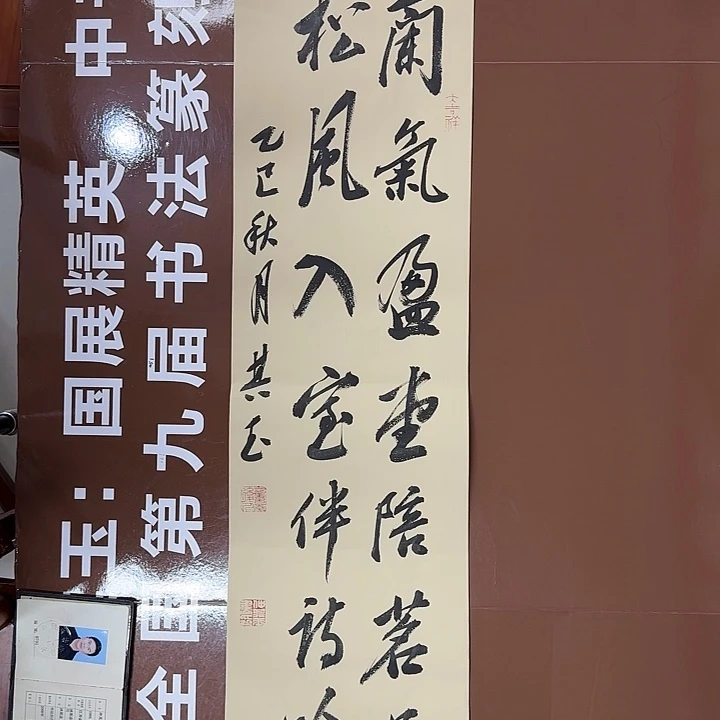 蘭氣盈堂陪茗
松風入室伴詩吟
乙巳秋月其玉
大吉祥
玉：国展精英 中
全国第九届书法篆刻